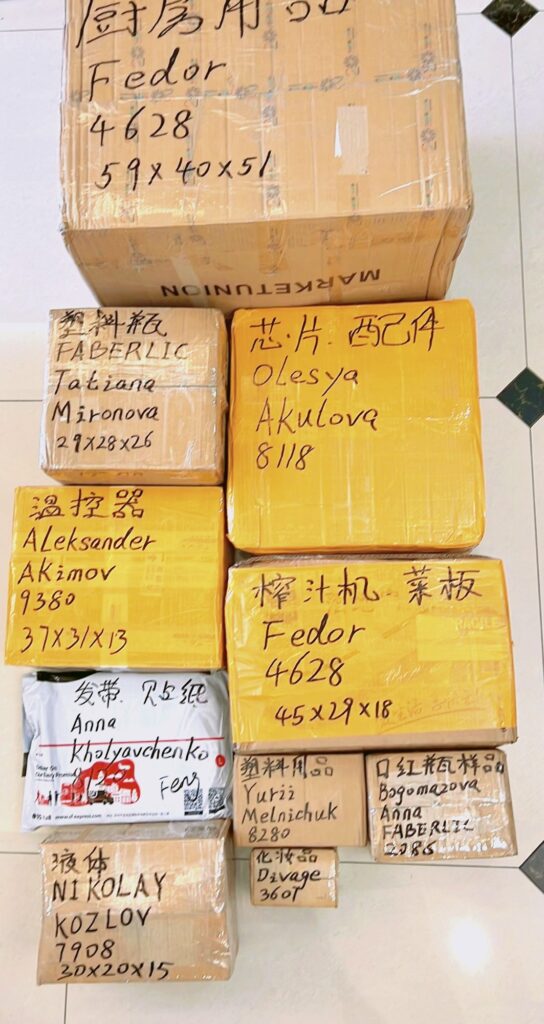 厨房用品
Fedor
4628
59×40×51
MARKETUNION
塑料瓶
FABERLIC
Tatiana
Mironova
29×28×26
芯片.配件
Olesya
Akulova
8118
温控器
ALeksander
AKimov
9380
37×31×13
榨汁机.菜板
Fedor
4628
45×29×18
发带.贴纸
Anna
Kholyavchenko
Feng
塑料用品
Yurii
Melnichuk
8280
口红瓶样品
Bogomazova
Anna
FABERLIC
2086
化妆品
Divage
液体
NIKOLAY
KOZLOV
7908
30×20×15